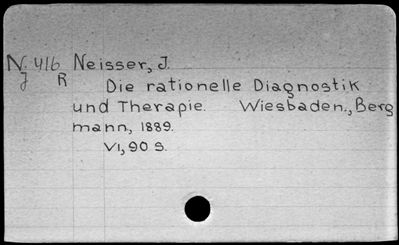 N. 416 Neisser, J.
J R
Die rationelle Diagnostik
und Therapie. Wiesbaden., Berg
mann, 1889.
VI, 90 S.